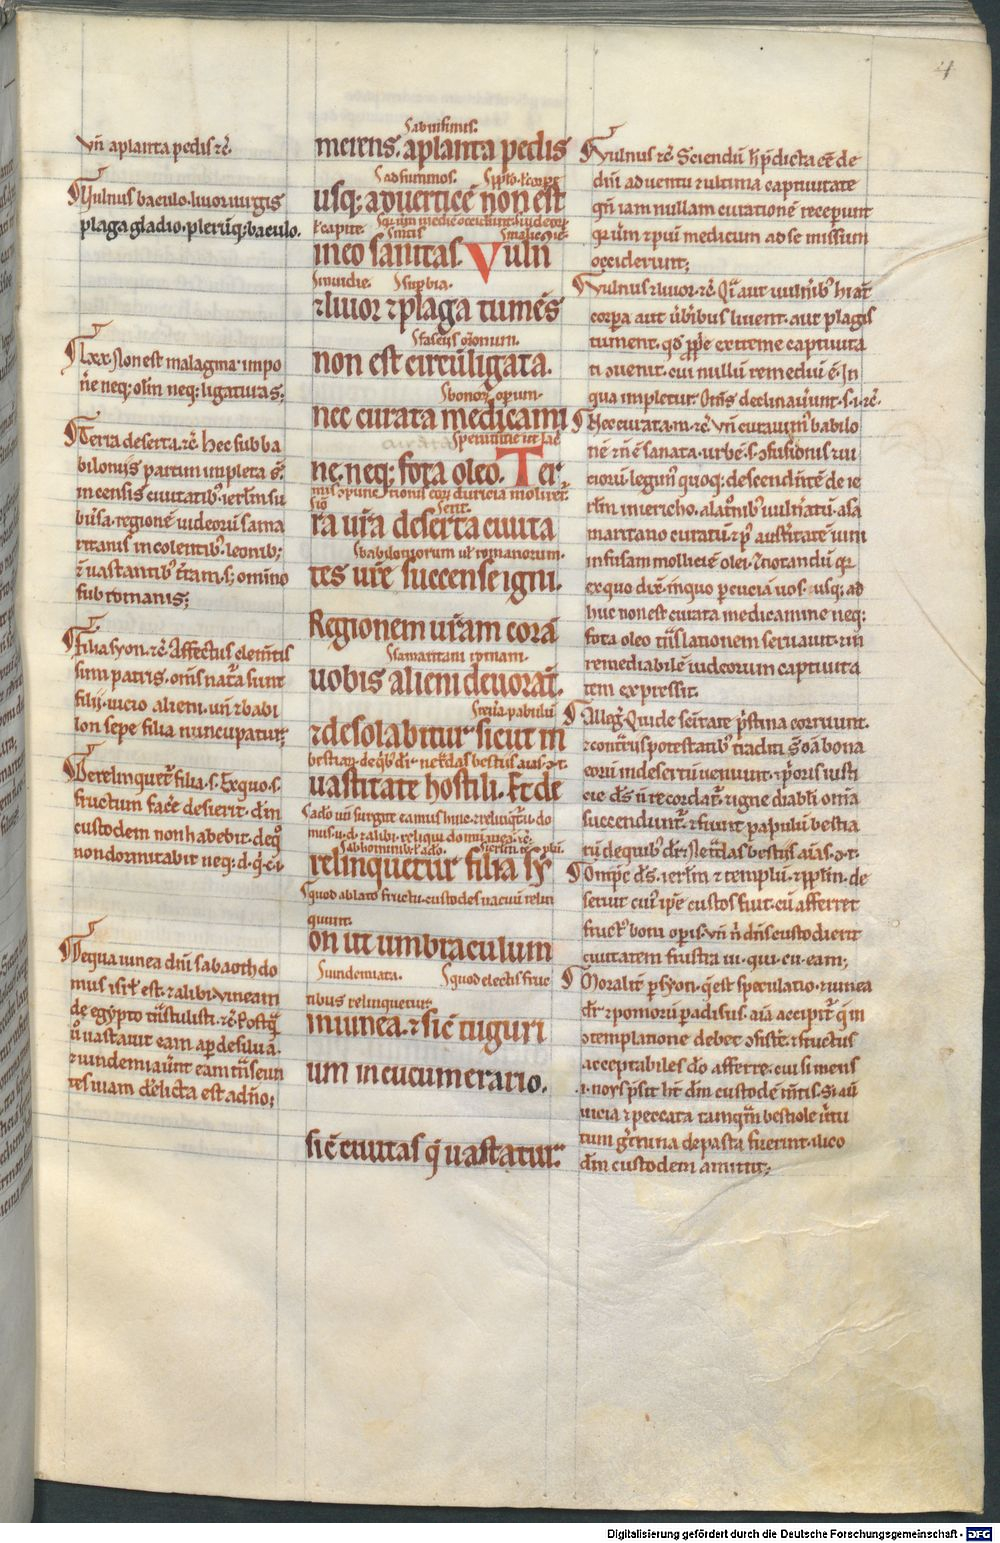 4
vñ aplanta pedis ⁊c̄.
Vulnus baculo. liuor uirgis
plaga gladio. pleruq; baculo.
lxx. Non est malagma impo
ne neq; olm̄ neq; ligaturas;
Terra deserta. ⁊c̄. hec sub ba
biloniis partim impleta s̄.
incensis ciuitatib; ierlm̄ su
bu̾sa. regionē iudeorū sama
ritanis incolentib; leonib;
⁊ uastantib; t̄ram. s; omīno
sub romanis;
Filia syon. ⁊c̄. Affectus clem̄tis
simi patris. om̄s nat̾a sunt
filij. uicio alieni. vñ ⁊ babi
lon sepe filia nuncupatur;
Derelinquet̾ filia. s. Ex quo. s.
fructum face̾ desierit. dm̄
custodem non habebit. de q̊
non dormitabit neq; d. q. c. i.
Neq̄ uinea dn̄i sabaoth do
mus isrł est. ⁊ alibi. vineam
de egypto t̾nstulisti. ⁊c̄. Postq̄
u̾o uastauit eam aper de silua.
⁊ uindemiauer̄t eam t̾nseun
tes uiam. derelicta est a dn̄o;
S ab infimis.
meiens. a planta pedis
S ad summos.
usq; ad uerticē non est
in eo sanitas. Vuln
S inuidie. S supbia.
⁊ liuor ⁊ plaga tumēs
S fasciis or̄onum.
non est circūligata.
S bonorꝝ operum.
nec curata medicami
ne. neq; fota oleo. Ter
ra ur̄a deserta ciuita
S babiloniorum ul̄ romanorum.
tes ur̄e succense igni.
Regionem ur̄am corā
S samaritani romani.
uobis alieni deuorāt.
⁊ desolabitur sicut in
uastitate hostili. Et de
relinquetur filia sy
S quod ablato fructu custodes uacuū relin
quunt.
on ut umbraculum
S uindemiata. S quod electis fruc
tibus relinquetur
in uinea. ⁊ sic̄ tuguri
um in cucumerario.
sic̄ ciuitas q̄ uastatur.
Vulnus ⁊c̄. Sciendū h̄ p̄dicta ēe de
dn̄i aduentu ⁊ ultima captiuitate
qn̄ iam nullam curationē recepunt
q̄ uerum ⁊ pium medicum ad se missum
occiderunt;
Vulnus ⁊ liuor. ⁊c̄. Quia aut uuln̄ib; hiāt
corpa aut u̾berib; liuent. aut plagis
tument. q̊d p̄prie extreme captiuita
ti ꝯuenit. cui nullū remediū ē. In
qua impletur. Om̄s declinauer̄unt. s. i. ⁊c̄.
Nec curata. m. ⁊c̄. vñ curauim̾ babilo
nē ⁊ n̄ ē sanata. urbē. s. ꝯfusionis ⁊ ui
ciorū. legim̾ quoq; descendentē de ie
rlm̄ in iericho. a latronib; uuln̄atū. a sa
maritano curatū. ⁊ p̾ austeritatē uini
infusam molliciē olei. Et notandū q̄
ex quo dix̄. in quo percuciā uos. usq; ad
huc non est curata medicamine neq;
fota oleo t̾nslationem seruauit. irre
remediabilē iudeorum captiuita
tem expressit.
Alleg̃. Qui de sc̄itate p̾stina corruunt.
⁊ contrariis potestatib; traditi s̄. om̄ia bona
eorū in desertū ueniunt. ⁊ p̾oris iusti
cie d̄s n̄ recordat̾. ⁊ igne diaboli om̄ia
succendunt̾. ⁊ fiunt papulum bestia
rū de quib; dr̄. Ne tradas bestiis aīas. ꝯ. t.
Omp̄s d̄s. ierlm̄ ⁊ templū. ⁊ pp̄lm̄. de
seruit cui̾ ip̄e custos fuit. cū afferret
fructū boni operis. vñ n̄ dn̄s custodierit
ciuitatem frustra ui. qui. cu. eam;
Moralit̾ p̾ syon. q̄ est speculatio. ⁊ uinea
dr̄ ⁊ pomorū paradisus. aīa accipit̾. q̄ in
ꝯtemplatione debet ꝯsistere. ⁊ fructus
acceptabiles deo afferre. cui si mens
.i. noys p̄sit. ht̄ dm̄ custodē m̄tis. Si au̅
uicia ⁊ peccata tamq̄ bestiole u̾tu
tum g̾mina depasta fuerint. ilico
dm̄ custodem amittit;
Digitalisierung gefördert durch die Deutsche Forschungsgemeinschaft - DFG